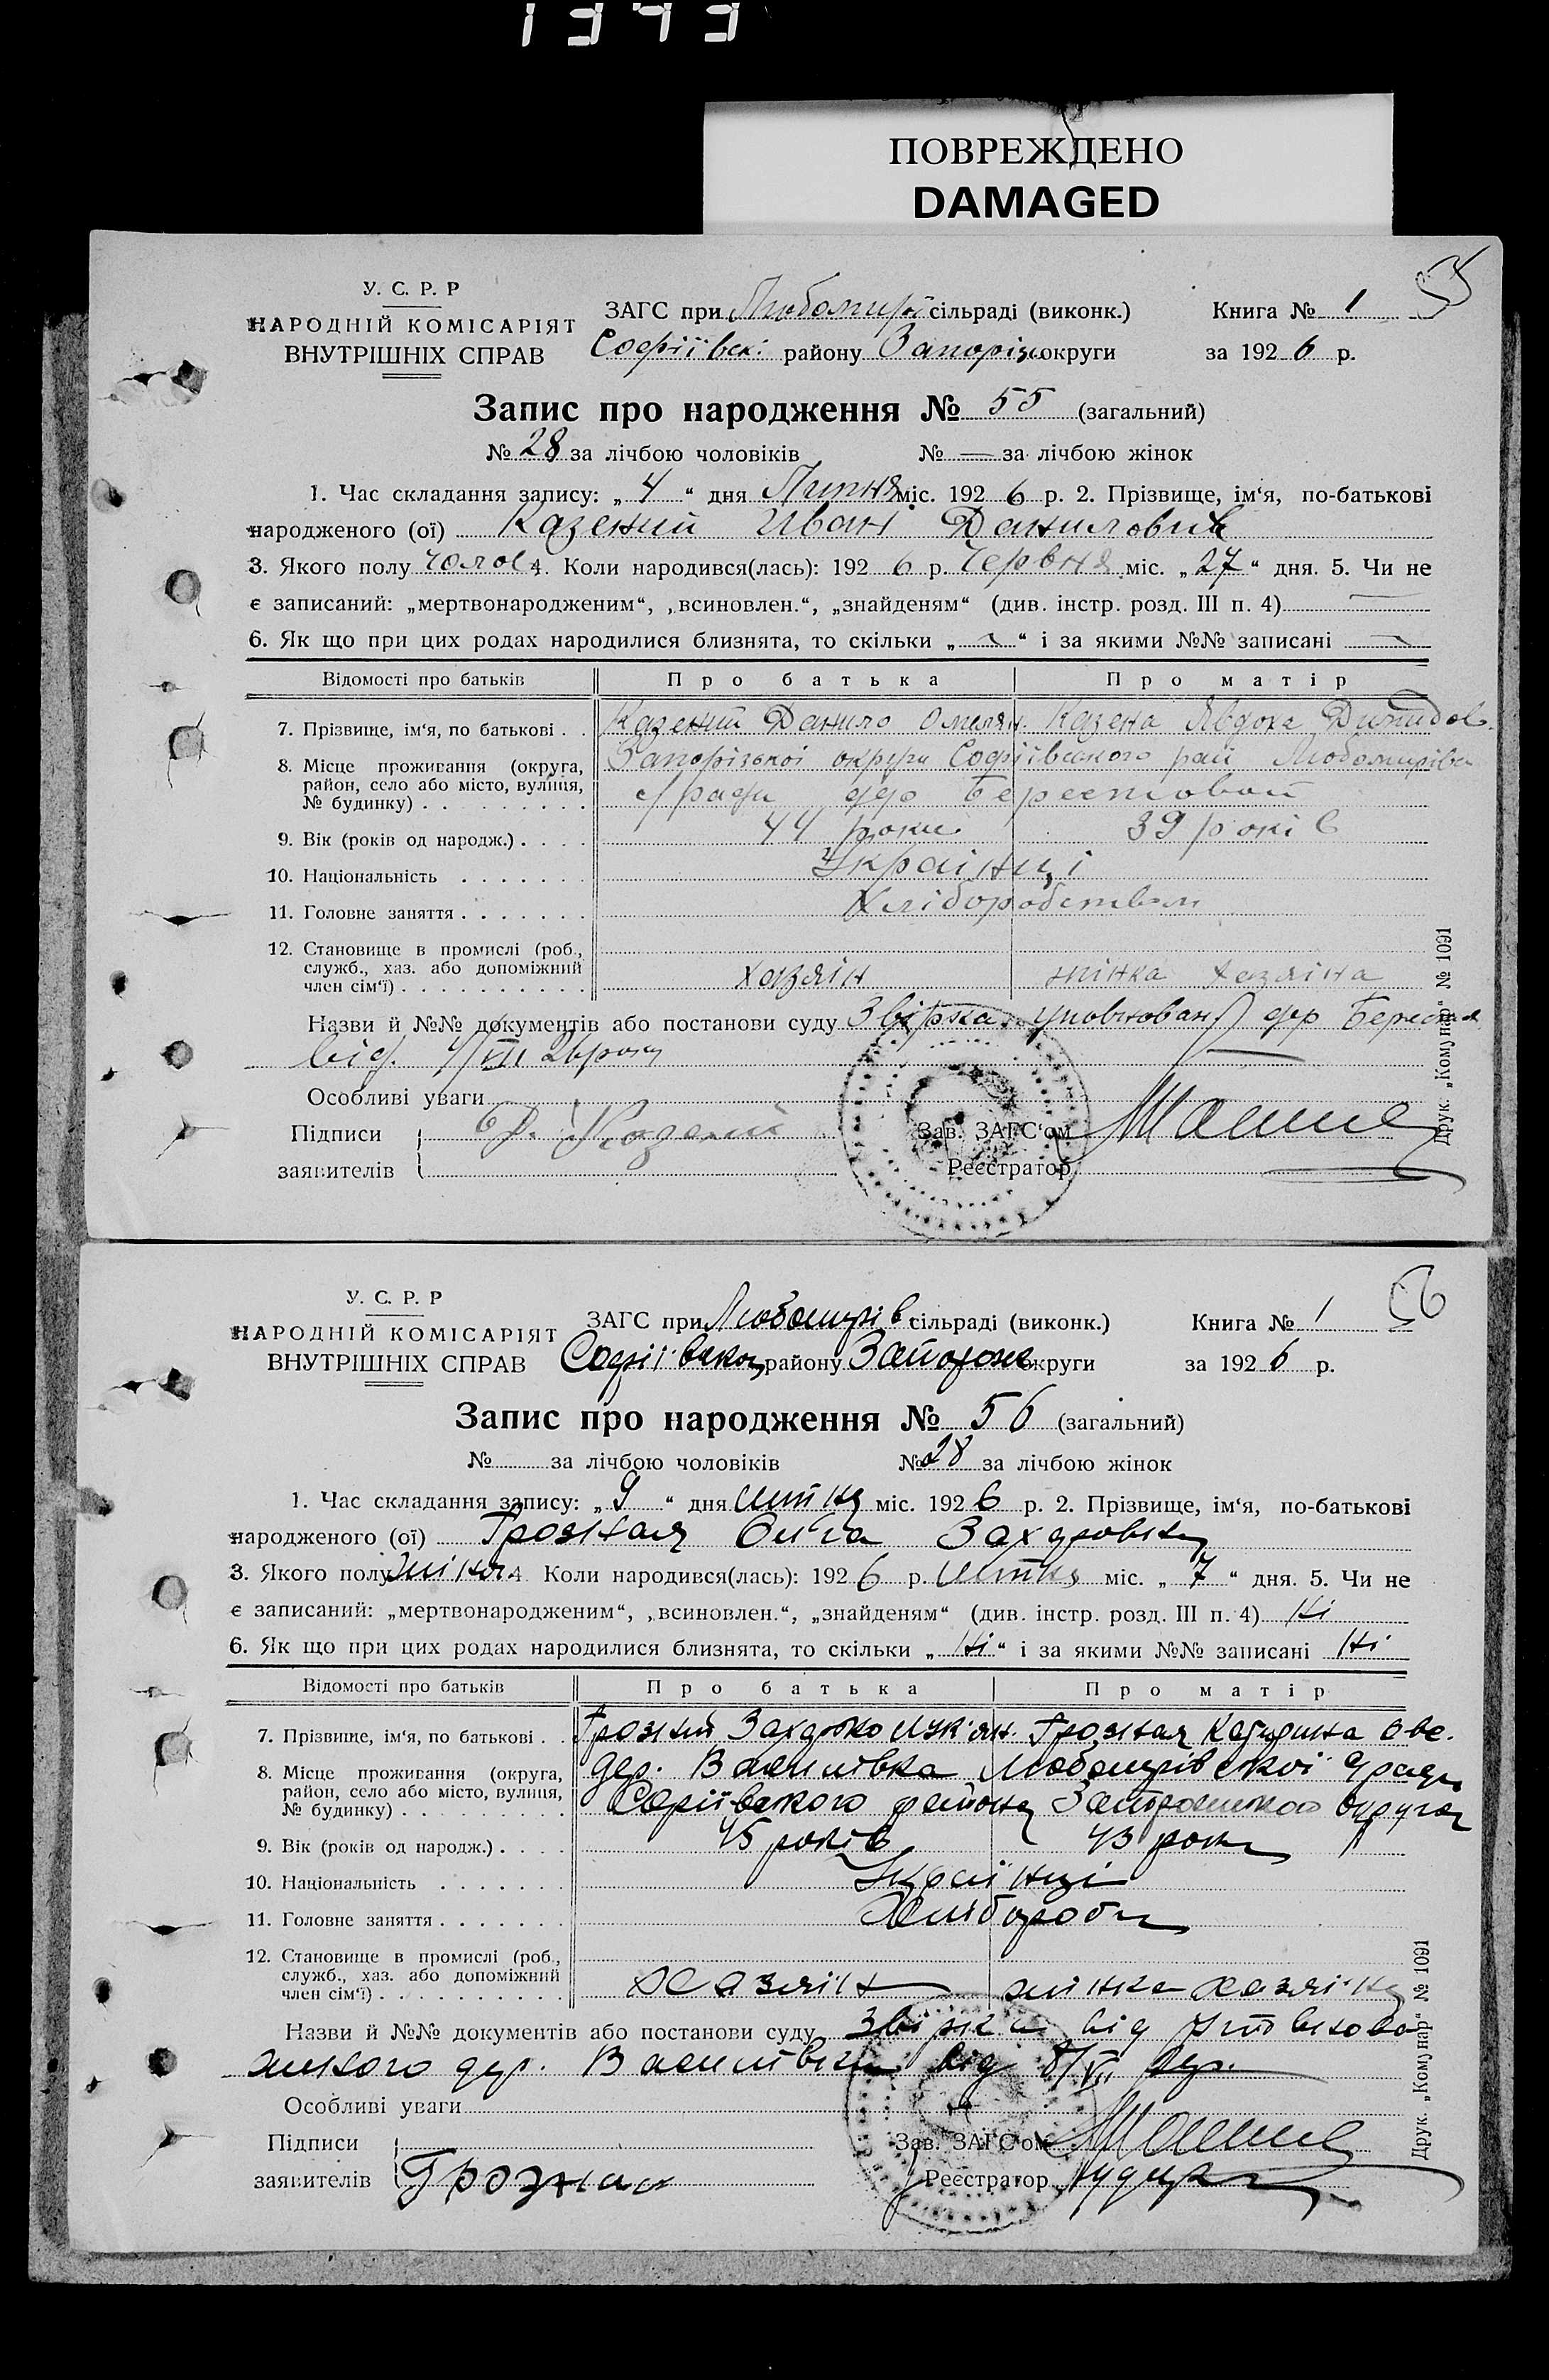 1343
ПОВРЕЖДЕНО
DAMAGED
55
У. С. Р. Р
НАРОДНІЙ КОМІСАРІЯТ
ВНУТРІШНІХ СПРАВ
ЗАГС при Любомирі сільраді (виконк.) Книга № 1
Софіївск: району Запоріз округи за 1926 р.
Запис про народження № 55 (загальний)
№ 28 за лічбою чоловіків № — за лічбою жінок
1. Час складання запису: „4“ дня Липня міс. 1926 р. 2. Прізвище, ім‘я, по-батькові
народженого (ої) Казений Иван Данилович
3. Якого полу чолов 4. Коли народився(лась): 1926 р. Червня міс. „27“ дня. 5. Чи не
є записаний: „мертвонародженим“, „всиновлен.“, „знайденям“ (див. інстр. розд. III п. 4) —
6. Як що при цих родах народилися близнята, то скільки „—“ і за якими №№ записані —
Відомості про батьків Про батька Про матір
7. Прізвище, ім‘я, по батькові . . Казений Данило Омелян. Казена Явдоха Димидов.
8. Місце проживання (округа, район, село або місто, вулиця, № будинку) Запорізької округи Софіївського рай Любомирівск
с/ради дер Берестовой
9. Вік (років од народж.) . . . . 44 роки 39 років
10. Національність Українці
11. Головне заняття Хліборобством
12. Становище в промислі (роб., служб., хаз. або допоміжний член сім‘ї) хазяін жінка хазяіна
Назви й №№ документів або постанови суду Звірка уповнован дер Берестов
від. 4/VII 26 року
Особливі уваги
Підписи Д. Казений Зав. ЗАГС‘ом
заявителів Реєстратор
Друк. „Комунар“ № 1091
56
У. С. Р. Р
НАРОДНІЙ КОМІСАРІЯТ
ВНУТРІШНІХ СПРАВ
ЗАГС при Любомирів сільраді (виконк.) Книга № 1
Софіївског району Запорож округи за 1926 р.
Запис про народження № 56 (загальний)
№ за лічбою чоловіків № 28 за лічбою жінок
1. Час складання запису: „9“ дня липня міс. 1926 р. 2. Прізвище, ім‘я, по-батькові
народженого (ої) Грозная Ольга Захаровна
3. Якого полу жіноч 4. Коли народився(лась): 1926 р. липня міс. „7“ дня. 5. Чи не
є записаний: „мертвонародженим“, „всиновлен.“, „знайденям“ (див. інстр. розд. III п. 4) Ні
6. Як що при цих родах народилися близнята, то скільки „Ні“ і за якими №№ записані Ні
Відомості про батьків Про батька Про матір
7. Прізвище, ім‘я, по батькові . . Грозний Захарко Лук‘ян. Грозная Катерина
8. Місце проживання (округа, район, село або місто, вулиця, № будинку) дер. Василівка Любомирівської с/ради
Софіївського району Запорожского округа
9. Вік (років од народж.) . . . . 45 років 43 роки
10. Національність Українці
11. Головне заняття Хлібороби
12. Становище в промислі (роб., служб., хаз. або допоміжний член сім‘ї) хазяїн жінка хазяїна
Назви й №№ документів або постанови суду Звірка від уповнова
женого дер. Василівки від 8/VII
Особливі уваги
Підписи Зав. ЗАГС‘ом
заявителів Грозний Реєстратор
Друк. „Комунар“ № 1091